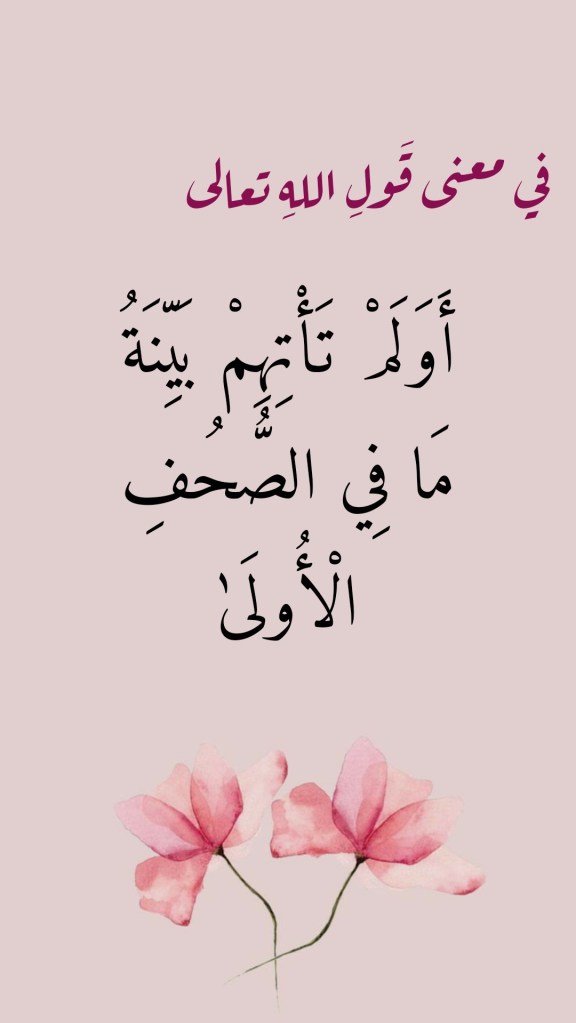 في معنى قَولِ اللهِ تعالى
أَوَلَمْ تَأْتِهِمْ بَيِّنَةُ
مَا فِي الصُّحُفِ
الْأُولَىٰ